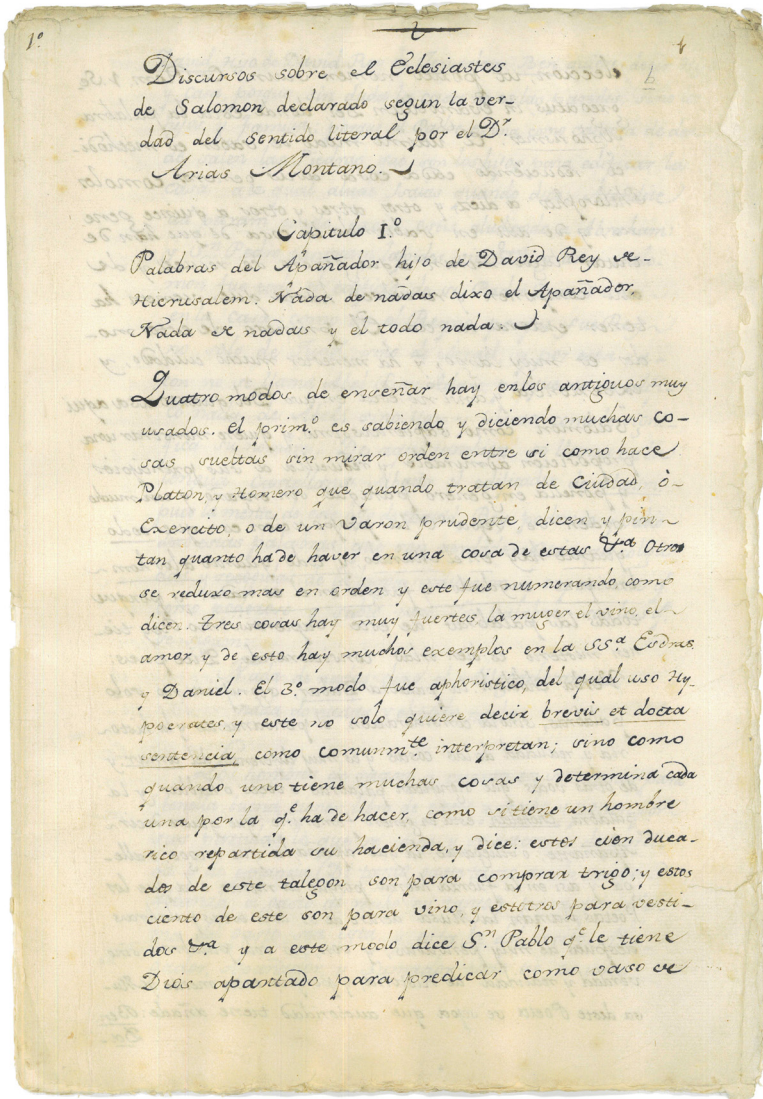 1º
Discursos sobre el Eclesiastes
de Salomon declarado segun la ver-
dad del sentido literal por el Dr.
Arias Montano.
Capitulo Iº
Palabras del Apañador hijo de David Rey de
Hierusalem. Nada de nadas dixo el Apañador.
Nada de nadas y el todo nada.
Quatro modos de enseñar hay enlos antiguos muy
usados. el prim.º es sabiendo y diciendo muchas co-
sas sueltas sin mirar orden entre si como hace
Platon, y Homero que quando tratan de Ciudad, ò
Exercito, o de un Varon prudente, dicen y pin-
tan quanto ha de haver en una cosa de estas &.a Otro
se reduxo mas en orden y este fue numerando, como
dicen. tres cosas hay muy fuertes, la muger el vino, el
amor, y de esto hay muchos exemplos en la SS.a Esdras
y Daniel. El 3.º modo fue aphoristico, del qual uso Hy-
pocrates, y este no solo quiere decir brevis et docta
sentencia, como comunm.te interpretan; sino como
quando uno tiene muchas cosas y determina cada
una por la q.e ha de hacer, como si tiene un hombre
rico repartida su hacienda, y dice: estos cien duca-
dos de este talegon son para comprar trigo; y estos
ciento de este son para vino, y estotros para vesti-
dos &.a y a este modo dice S.n Pablo q.e le tiene
Dios apartado para predicar como vaso de